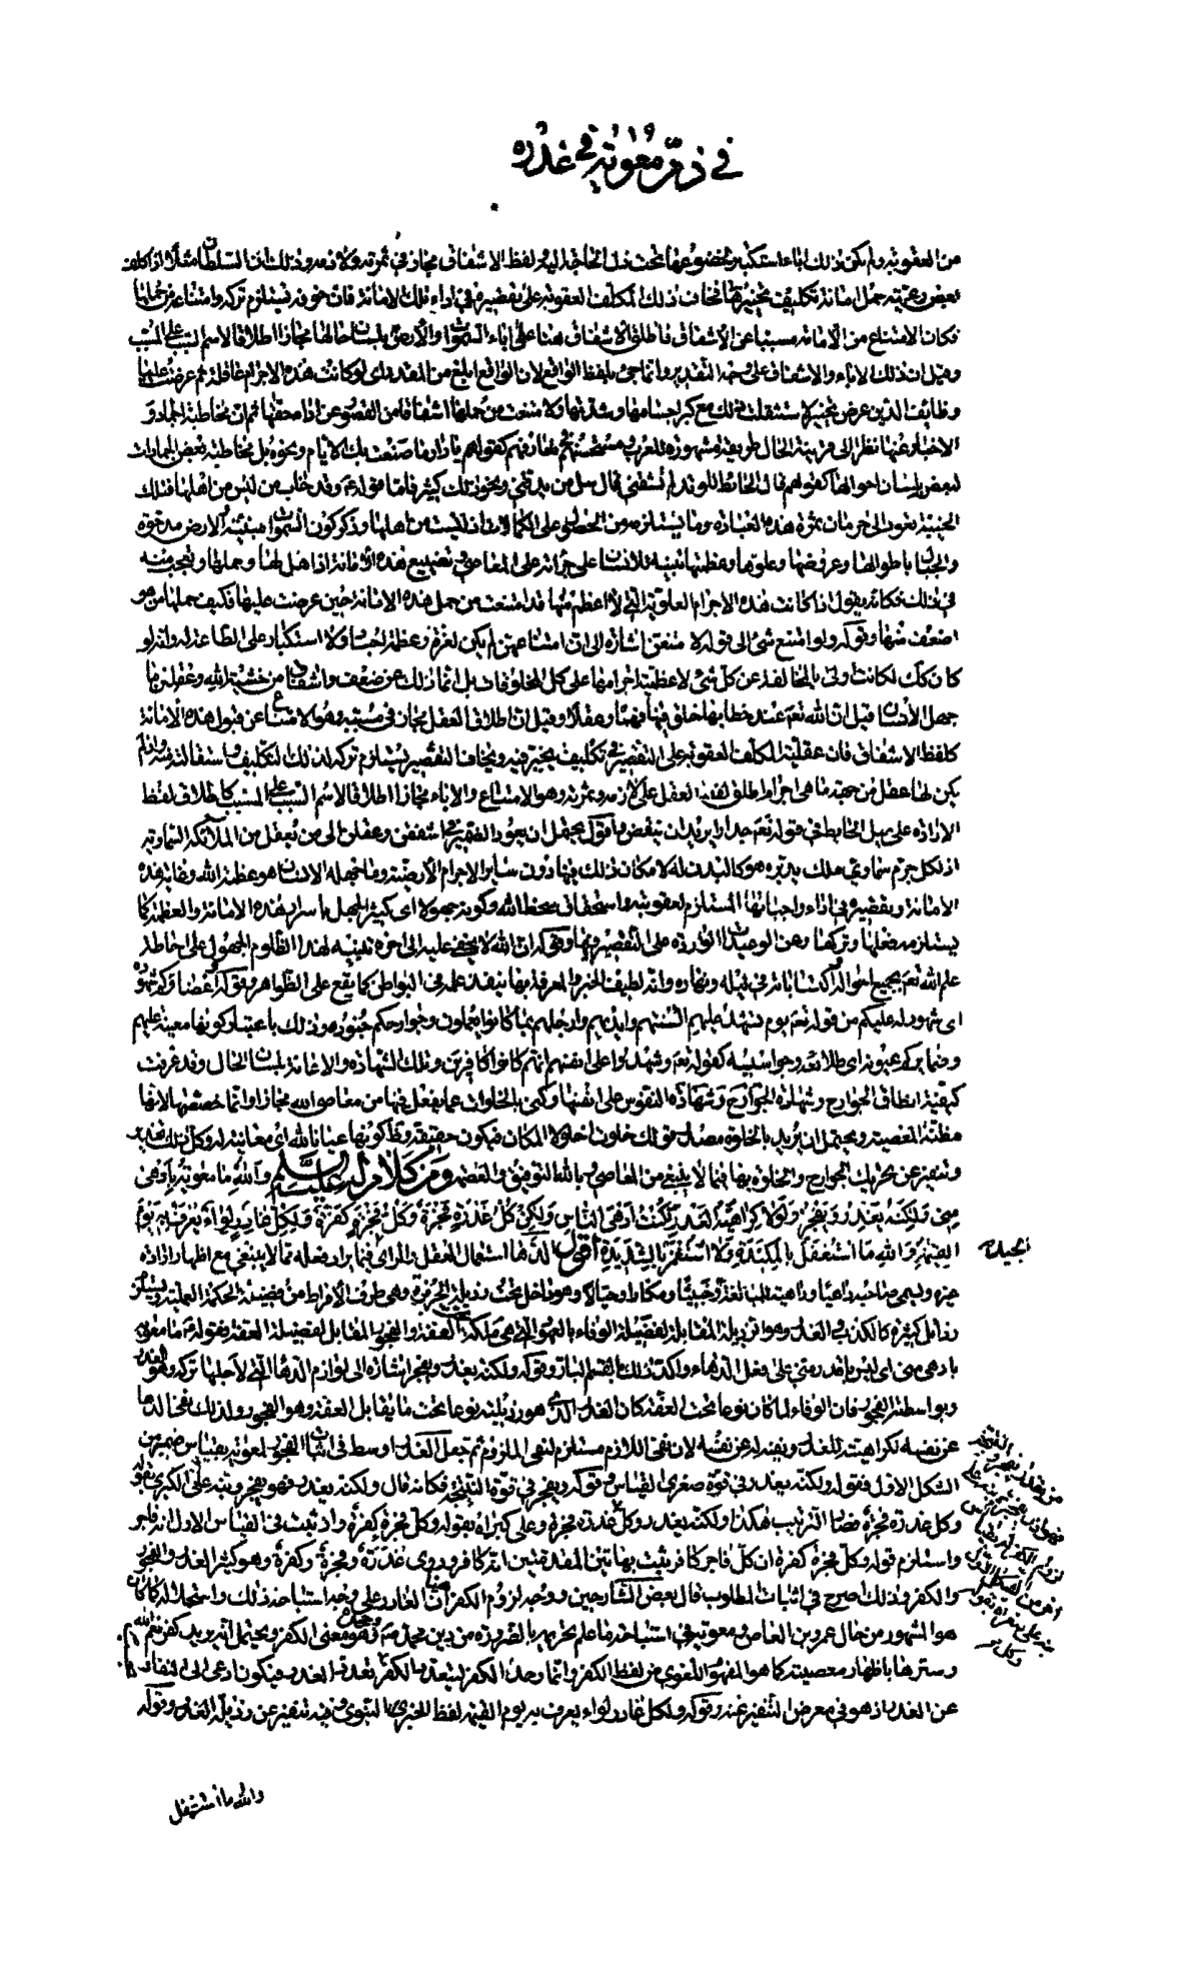 في ذمّ معوية في غدره
من العقوبة ولم يكن ذلك اباء استكبار لخضوعها تحت ذل الحاجة اليه ولفظ الاشفاق مجاز في ثمرته ولازمه وذلك ان السلطان مثلا اذا كلف
بعض رعيته حمل امانة تكليف تخيير فخاف ذلك المكلف العقوبة على تقصيره في اداء تلك الامانة فان خوفه يستلزم تركه وامتناعه من حملها
فكان الامتناع من الامانة مسببا عن الاشفاق فاطلق الاشفاق هنا على اباء السموات والأرض بلسان حالها مجازا اطلاقا لاسم السبب على المسبب
وقيل ان ذلك الاباء والاشفاق على وجه التقدير وانما جئ بلفظ الواقع لان الواقع ابلغ من المقدر اى لو كانت هذه الاجرام عاقلة ثم عرضت عليها
وظايف الدين عرض تخيير لاستثقلت ذلك مع كبر اجسامها وشدتها ولامتنعت من حملها اشفاقا من القصور عن اداء حقها ثم ان مخاطبة الجماد و
الاخبار عنها نظرا الى قرينة الحال طريقة مشهورة للعرب ومستحسنة في تعارفهم كقولهم يا دار ما صنعت بك الايام ونحوه بل مخاطبة بعض الجمادات
لبعض بلسان احوالها كقولهم قال الحائط للوتد لم تشقني قال سل من يدقني ونحو ذلك كثير فاما قوله وقد خاب من ليس من اهلها فتلك
الخيبة تعود الى حرمان ثمرة هذه العبادة وما يستلزمه من الحصول على الكمالات ان ليست من اهلها وذكر كون السموات مبنية والارض مدحوة
والجبال باطوالها وعروضها وعلوها وعظمتها تنبيه للانسان على جرأته على المعاصي وتضييع هذه الامانة اذا هل لها وحملها وتعجب منه
في ذلك فكانه يقول اذا كانت هذه الاجرام العلوية التي لا اعظم منها قد امتنعت من حمل هذه الامانة حين عرضت عليها فكيف حملها من هو
اضعف منها وقوله ولو امتنع شئ الى قوله لامتنعن اشارة الى ان امتناعهن لم يكن لعزة وعظمة اجساد ولا استكبار على الطاعة له وانه لو
كان كك لكانت اولى بالمخالفة عن كل شئ لاعظمية اجرامها على كل المخلوقات بل انما ذلك عن ضعف واشفاق من خشية الله وعقلن ما
جهل الأنسان قيل ان الله تعم عند خطابها خلق فيها فهما وعقلا وقيل ان اطلاق العقل مجاز في مسببه وهو الامتناع عن قبول هذه الامانة
كلفظ الاشفاق فان عقلية المكلف العقوبة على التقصير في تكليف يخير فيه ويخاف التقصير يستلزم تركه لذلك التكليف واستقالته واذ لم
يكن لها عقل من حيث ما هي اجرام اطلق لفظ العقل على لازمه وثمرته وهو الامتناع والاباء مجازا اطلاقا لاسم السبب على المسبب كاطلاق لفظ
الارادة على ميل الحائط في قوله تعم جدارا يريد ان ينقض واقول يحتمل ان يعود الضمير في اشفقن وعقلن الى من يعقل من الملائكة السماوية
اذ لكل جرم سماوي ملك يدبره هو كالبدن له لامكان ذلك فيها دون ساير الاجرام الأرضية وما جهله الانسان هو عظمة الله وغاية هذه
الامانة وتقصيره في اداء واجباتها المستلزم لعقوبته واستحقاق سخط الله وكونه جهولا اى كثير الجهل باسرار هذه الامانة والعظمة كما
يستلزمه فعلها وتركها وعن الوعيدات الواردة على التقصير فيها وقوله ان الله لا يخفى عليه الى اخره تنبيه لهذا الظلوم الجهول على احاطة
علم الله تعم بجميع احواله واكتساباته في ليله ونهاره وانه لطيف الخبر والمعرفة بها ينفذ علمه في البواطن كما يقع على الظواهر وقوله اعضاؤكم شهوده
اى شهود له عليكم من قوله تعم يوم تشهد عليهم السنتهم وايديهم وارجلهم بما كانوا يعملون وجوارحكم جنوده وذلك باعتبار كونها معينة عليهم
وضمايركم عيونه اى طلائعه وجواسيسه كقوله تعم وشهدوا على انفسهم انهم كانوا كافرين وتلك الشهادة والاعانة بلسان الحال وقد عرفت
كيفية انطاق الجوارح وشهادة الجوارح وشهادة النفوس على انفسها وكنى بالخلوات عما يفعل فيها من معاصي الله مجازا وانما خصصها لانها
مظنة المعصية ويحتمل ان يريد بالخلوة مصدر قولك خلوت اخلو لا المكان فيكون حقيقة وظ كونها عيانا لله اى معاينة له وكل ذلك تحذير
وتنفير عن تحريك الجوارح والخلوة بها فيما لا ينبغي من المعاصي وبالله التوفيق والعصمة ومن كلام له عليه السلم والله ما معوية بادهى
مني ولكنه يغدر ويفجر ولولا كراهية الغدر لكنت ادهى الناس ولكن كل غدرة فجرة وكل فجرة كفرة ولكل غادر لواء يعرف به يوم
القيمة والله ما استغفل بالمكيدة ولا استغمز بالشديدة اقول الدهاء استعمال العقل والراى فيما يراد فعله مما لا ينبغي مع اظهار ارادة
غيره ويسمى صاحبه داهيا وداهية للمبالغة وخبيثا ومكارا وحيالا وهو داخل تحت رذيلة الجربزة وهي طرف الافراط من فضيلة الحكمة العملية ويستلزم
رذايل كثيرة كالكذب والغدر وهو الرذيلة المقابلة لفضيلة الوفاء بالعهود التي هي ملكة تحت العفة والفجور المقابل لفضيلة العفة وقوله ما معوية
بادهى مني اى ليس باقدر مني على فعل الدهاء واكد ذلك بالقسم البار وقوله ولكنه يغدر ويفجر اشارة الى لوازم الدهاء التي لاجلها تركه وهو الغدر
وبواسطته الفجور فان الوفاء لما كان نوعا تحت العفة كان الغدر الذي هو رذيلته نوعا تحت ما يقابل العفة وهو الفجور ولذلك نفى الدهاء
عن نفسه لكراهيته للغدر ونفيه له عن نفسه لان نفي اللازم مستلزم لنفي الملزوم ثم جعل الغدر اوسط في اثبات الفجور لمعوية بقياس ضمير من
الشكل الاول فقوله ولكنه يغدر في قوة صغرى القياس وقوله ويفجر في قوة النتيجة فكانه قال ولكنه يغدر فهو يفجر ونبه على الكبرى بقوله
وكل غدرة فجرة فصار الترتيب هكذا ولكنه يغدر وكل غدرة فجرة وعلى كبراه بقوله وكل فجرة كفرة واذ ثبت في القياس الاول انه فاجر
واستلزم قوله وكل فجرة كفرة ان كل فاجر كافر يثبت بهاتين المقدمتين انه كافر وروى غدرة وفجرة وكفرة وهو كثير الغدر والفجور
والكفر وذلك اصرح في اثبات المطلوب قال بعض الشارحين ووجه لزوم الكفر هنا ان الغادر على وجه استباحة ذلك واستحلاله كما كان
هو المشهور من حال عمرو بن العاص ومعوية في استباحة ما علم تحريمه بالضرورة من دين محمد ص وجحده وهو معنى الكفر ويحتمل انه يريد كفر نعم الله
وسترها باظهار معصيته كما هو المفهوم اللغوي من لفظ الكفر وانما وحد الكفرة ليتعدد الكفر بتعدد الغدر فيكون ادعى الى النفار
عن الغدر اذ هو في معرض التنفير عنه وقوله ولكل غادر لواء يعرف به يوم القيمة لفظ الخبر النبوي وفيه تنفير عن رذيلة الغدر وقوله
والله ما استغفل